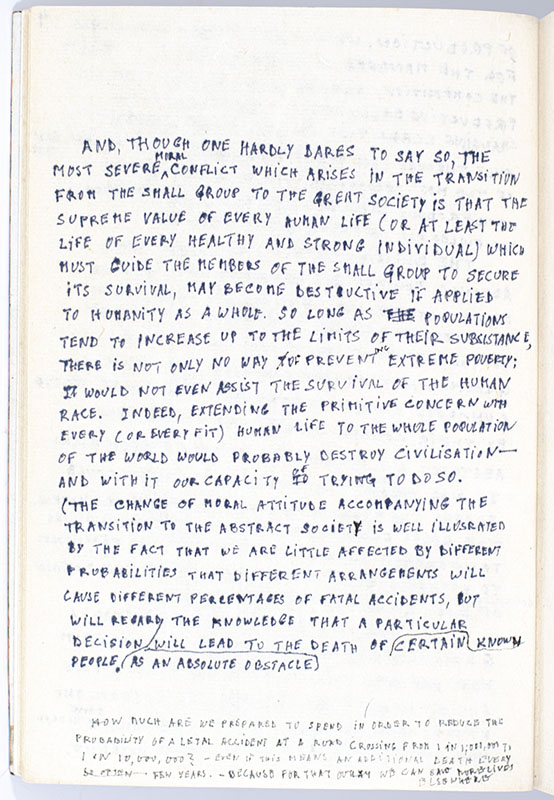 AND, THOUGH ONE HARDLY DARES TO SAY SO, THE
MOST SEVERE MORAL CONFLICT WHICH ARISES IN THE TRANSITION
FROM THE SMALL GROUP TO THE GREAT SOCIETY IS THAT THE
SUPREME VALUE OF EVERY HUMAN LIFE (OR AT LEAST THE
LIFE OF EVERY HEALTHY AND STRONG INDIVIDUAL) WHICH
MUST GUIDE THE MEMBERS OF THE SMALL GROUP TO SECURE
ITS SURVIVAL, MAY BECOME DESTRUCTIVE IF APPLIED
TO HUMANITY AS A WHOLE. SO LONG AS THE POPULATIONS
TEND TO INCREASE UP TO THE LIMITS OF THEIR SUBSISTANCE,
THERE IS NOT ONLY NO WAY OF PREVENTING EXTREME POVERTY;
IT WOULD NOT EVEN ASSIST THE SURVIVAL OF THE HUMAN
RACE. INDEED, EXTENDING THE PRIMITIVE CONCERN WITH
EVERY (OR EVERY FIT) HUMAN LIFE TO THE WHOLE POPULATION
OF THE WORLD WOULD PROBABLY DESTROY CIVILISATION—
AND WITH IT OUR CAPACITY OF TRYING TO DO SO.
(THE CHANGE OF MORAL ATTITUDE ACCOMPANYING THE
TRANSITION TO THE ABSTRACT SOCIETY IS WELL ILLUSRATED
BY THE FACT THAT WE ARE LITTLE AFFECTED BY DIFFERENT
PROBABILITIES THAT DIFFERENT ARRANGEMENTS WILL
CAUSE DIFFERENT PERCENTAGES OF FATAL ACCIDENTS, BUT
WILL REGARD THE KNOWLEDGE THAT A PARTICULAR
DECISION WILL LEAD TO THE DEATH OF CERTAIN KNOWN
PEOPLE. (AS AN ABSOLUTE OBSTACLE)
HOW MUCH ARE WE PREPARED TO SPEND IN ORDER TO REDUCE THE
PROBABILITY OF A LETAL ACCIDENT AT A ROAD CROSSING FROM 1 IN 1,000,000 TO
1 IN 10,000,000? – EVEN IF THIS MEANS AN ADDITIONAL DEATH EVERY
FEW YEARS. – BECAUSE FOR THAT OUTLAY WE CAN SAVE MORE LIVES
ELSEWHERE